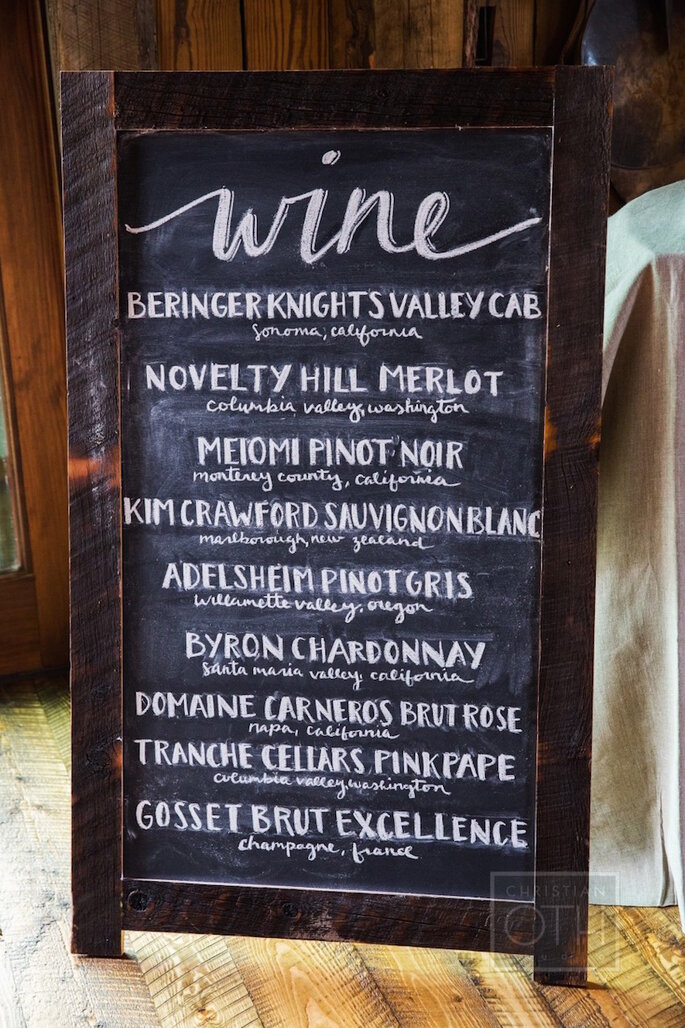 wine
BERINGER KNIGHTS VALLEY CAB
sonoma, california
NOVELTY HILL MERLOT
columbia valley, washington
MEIOMI PINOT NOIR
monterey county, california
KIM CRAWFORD SAUVIGNON BLANC
marlborough, new zealand
ADELSHEIM PINOT GRIS
willamette valley, oregon
BYRON CHARDONNAY
santa maria valley, california
DOMAINE CARNEROS BRUT ROSE
napa, california
TRANCHE CELLARS PINK PAPE
columbia valley, washington
GOSSET BRUT EXCELLENCE
champagne, france
CHRISTIAN
OTH